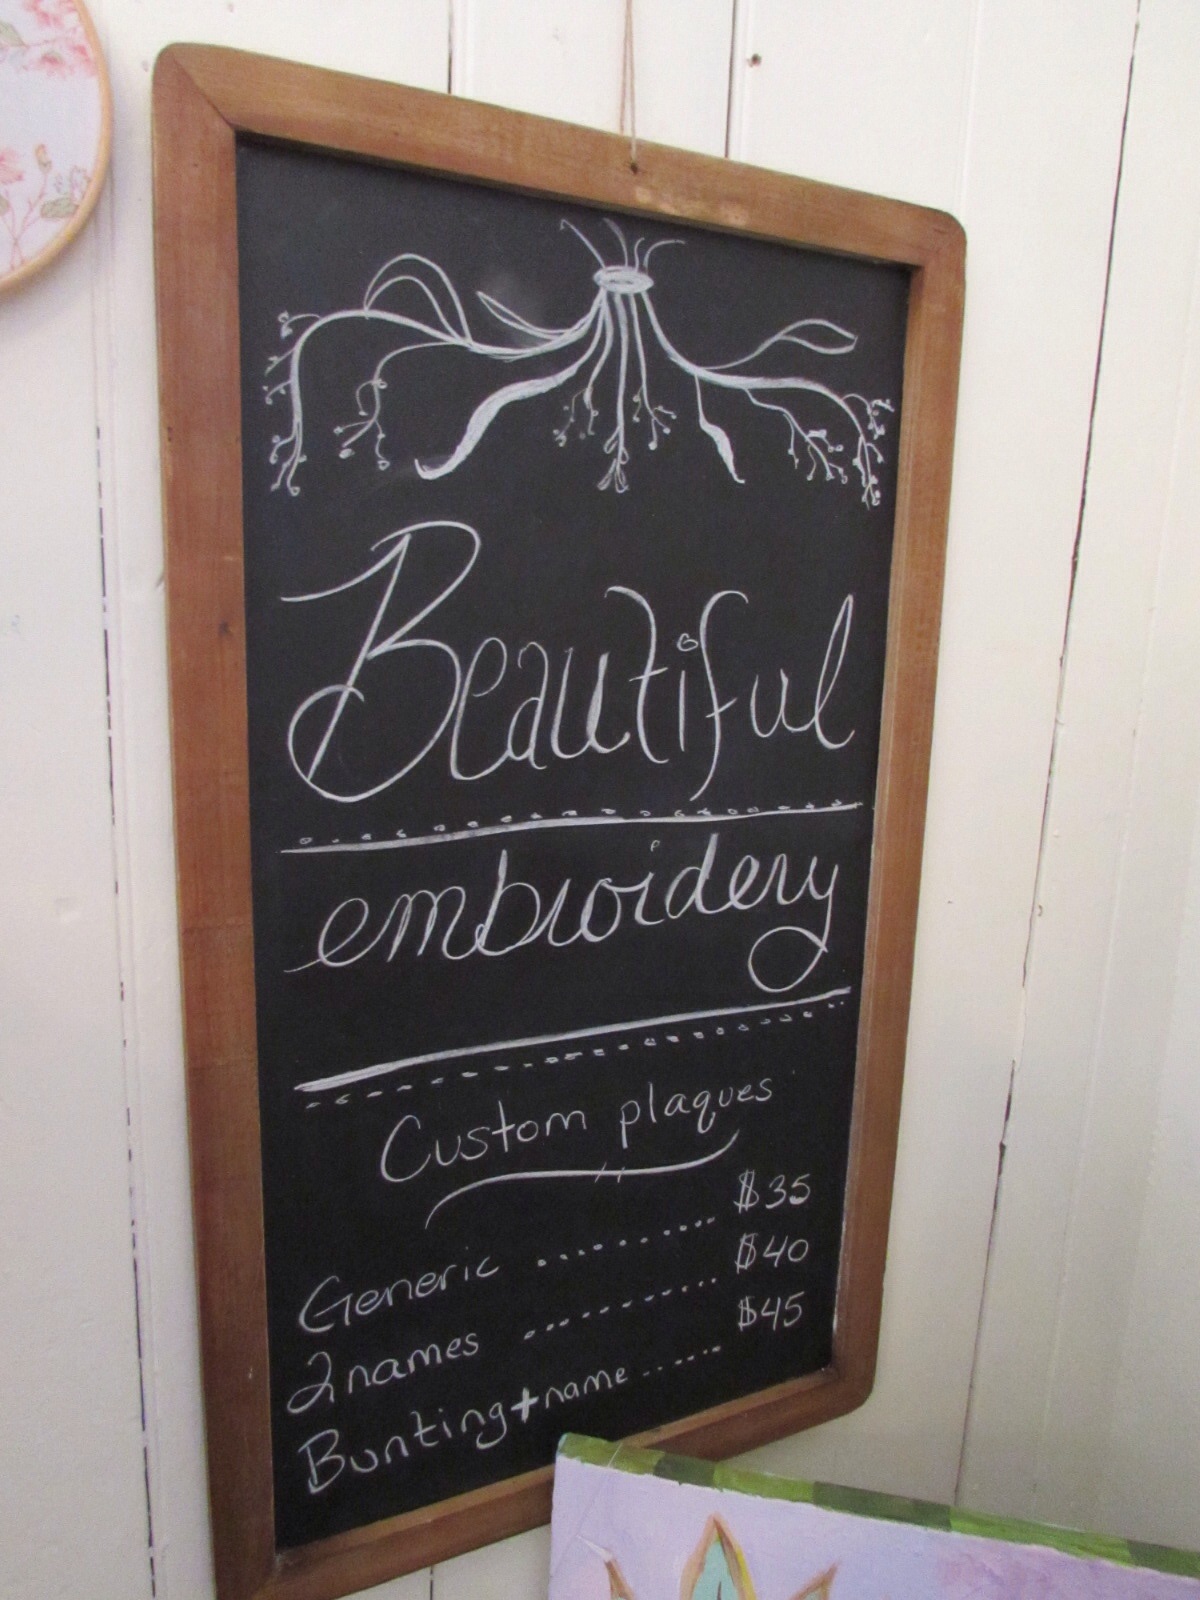 Beautiful
embroidery
Custom plaques
Generic .......... $35
2 names .......... $40
Bunting + name ...... $45